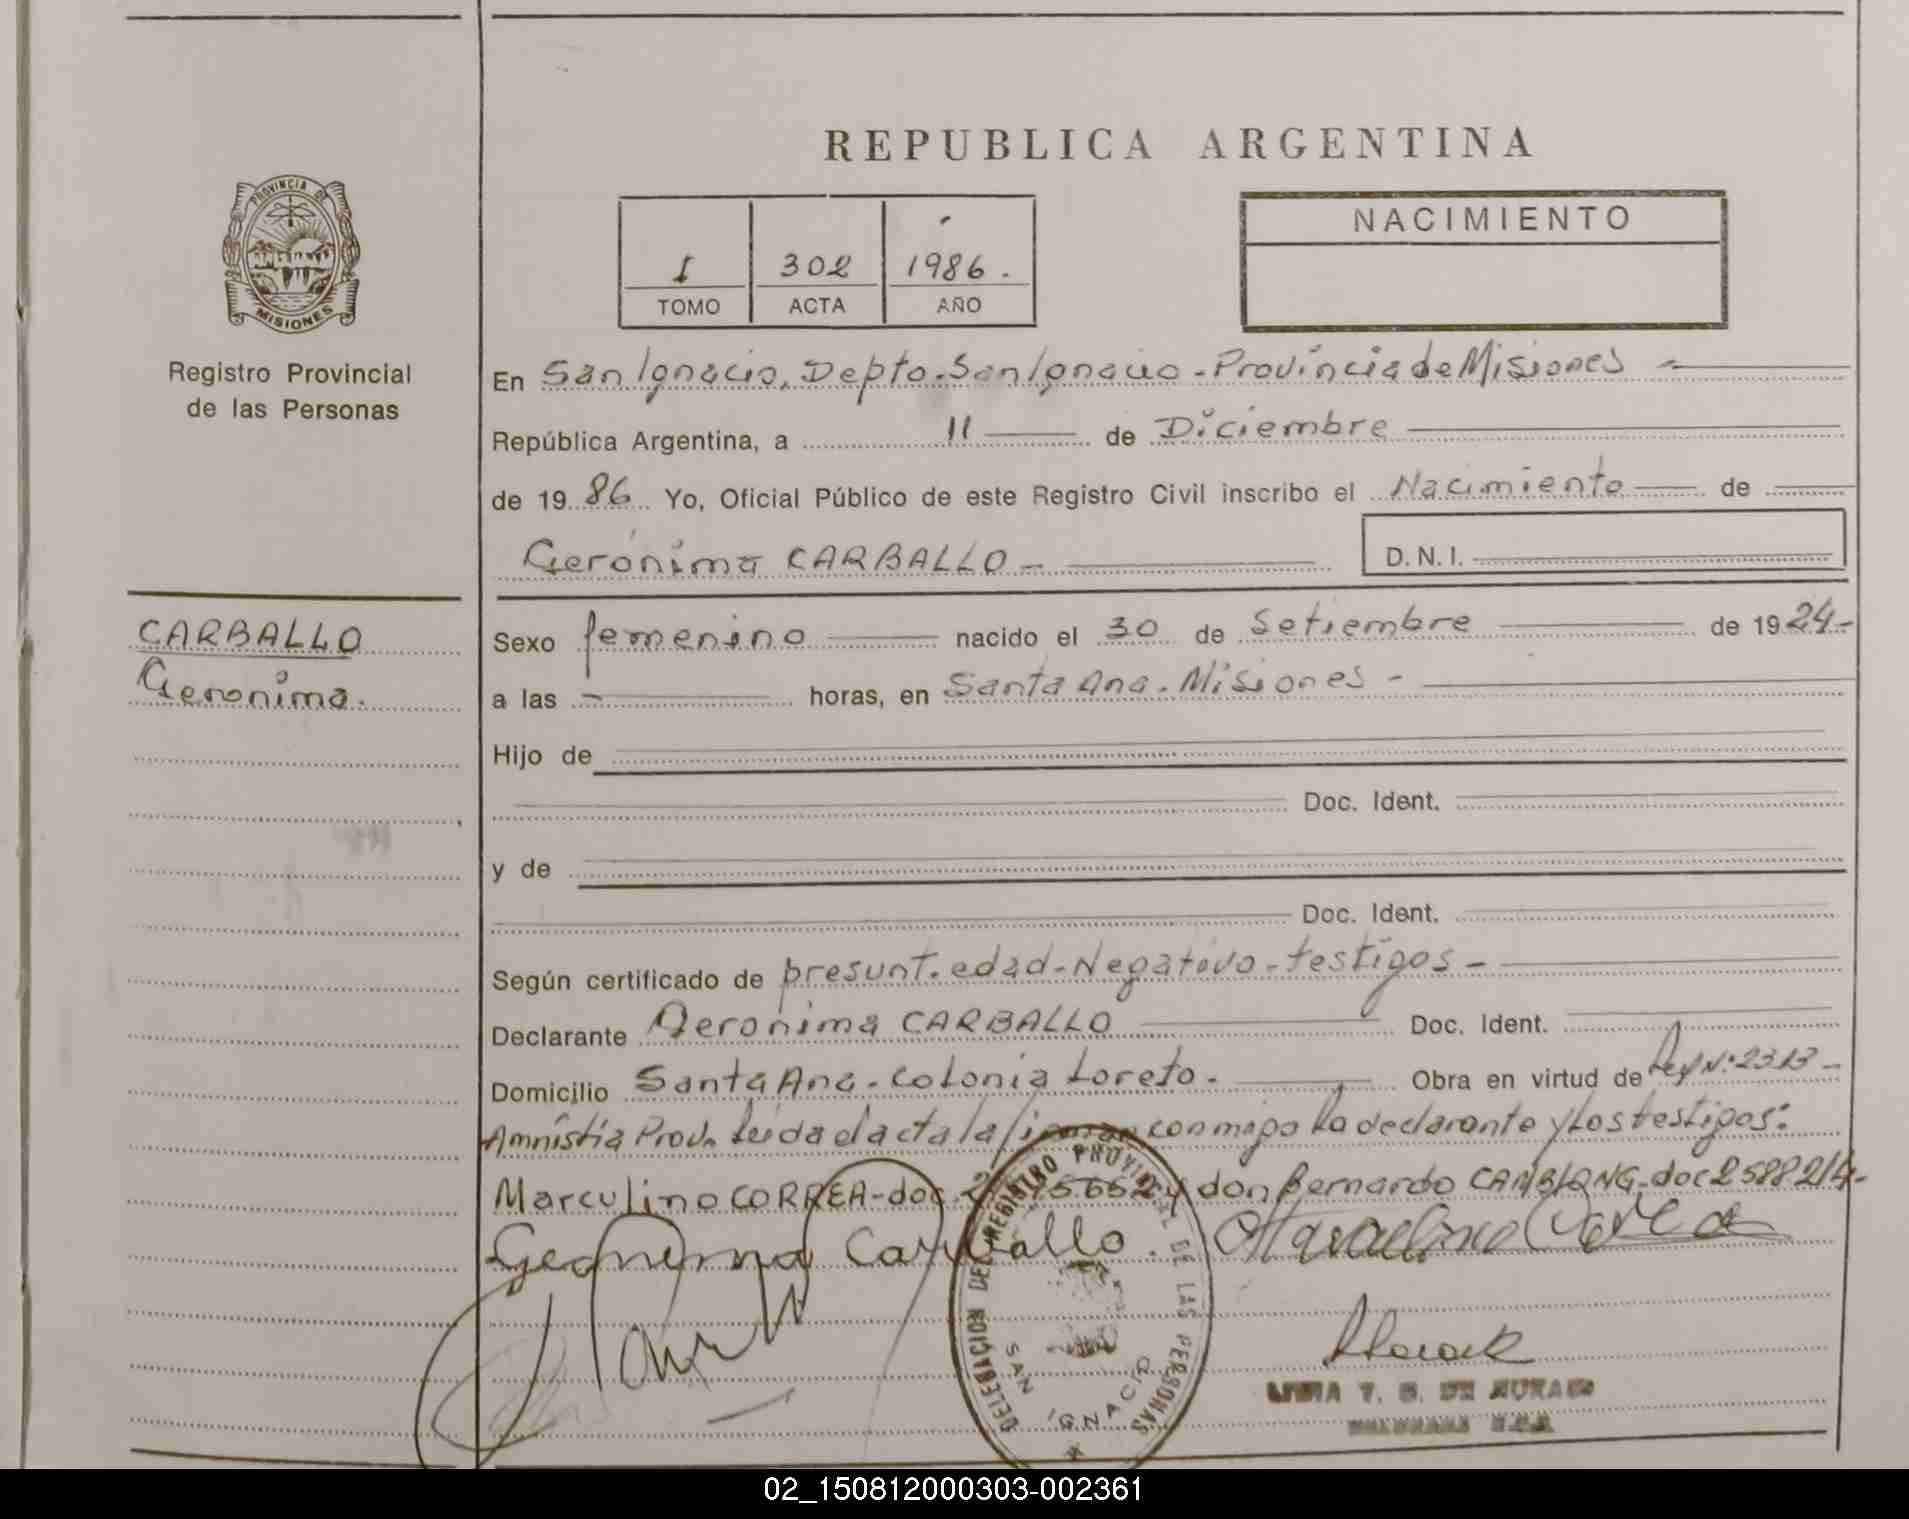 REPUBLICA ARGENTINA
PROVINCIA DE
MISIONES
Registro Provincial
de las Personas
1 302 1986.
TOMO ACTA AÑO
NACIMIENTO
En San Ignacio, Depto. San Ignacio - Provincia de Misiones -
República Argentina, a 11 de Diciembre
de 1986 Yo, Oficial Público de este Registro Civil inscribo el Nacimiento de
Gerónima CARBALLO - D.N.I.
CARBALLO
Geronima.
Sexo femenino nacido el 30 de Setiembre de 1924-
a las - horas, en Santa Ana. Misiones -
Hijo de
Doc. Ident.
y de
Doc. Ident.
Según certificado de presunt. edad - Negativo - testigos -
Declarante Geronima CARBALLO Doc. Ident.
Domicilio Santa Ana - Colonia Loreto. Obra en virtud de Ley Nº 2313 -
Amnistía Prov. Leída el acta la firman conmigo la declarante y los testigos:
Marculino CORREA - doc. y don Bernardo doc 2588214-
Geronima Carballo.
DELEGACION DEL REGISTRO PROVINCIAL DE LAS PERSONAS
SAN IGNACIO
02_150812000303-002361